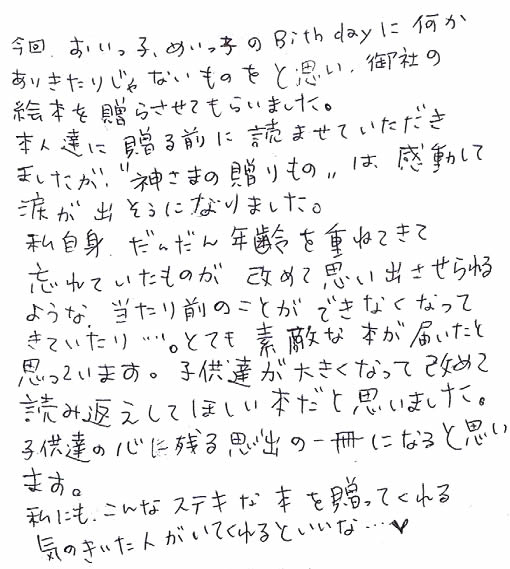 今回、おいっ子、めいっ子のBith dayに何か
ありきたりじゃないものをと思い、御社の
絵本を贈らさせてもらいました。
本人達に贈る前に読ませていただき
ましたが、"神さまの贈りもの"は感動して
涙が出そうになりました。
私自身、だんだん年齢を重ねてきて
忘れていたものが改めて思い出させられる
ような、当たり前のことができなくなって
きていたり…。とても素敵な本が届いたと
思っています。子供達が大きくなって改めて
読み返えしてほしい本だと思いました。
子供達の心に残る思出の一冊になると思い
ます。
私にも、こんなステキな本を贈ってくれる
気のきいた人がいてくれるといいな…♥